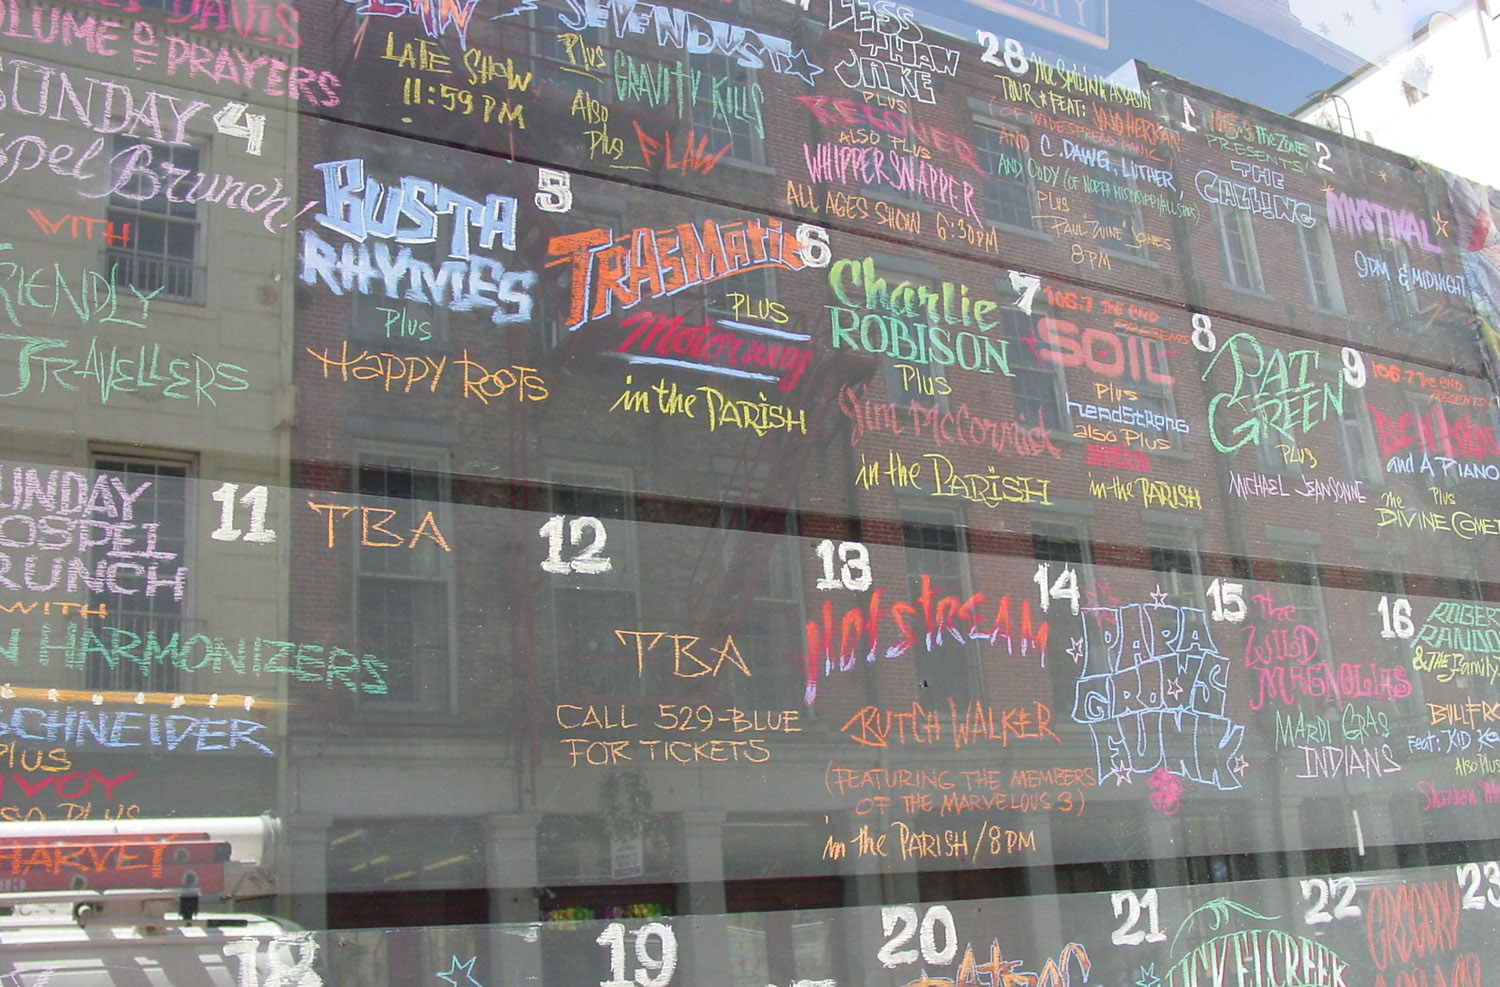 DAVIS
VOLUME OF PRAYERS
SUNDAY
Gospel Brunch!
WITH
FRIENDLY
TRAVELLERS
LATE SHOW
11:59 PM
SEVENDUST
Plus
GRAVITY KILLS
Also
Plus
FLAW
LESS
THAN
JAKE
PLUS
RECOVER
ALSO PLUS
WHIPPERSNAPPER
ALL AGES SHOW 6:30PM
CITY
28
TOUR * FEAT:
(OF WIDESPREAD PANIC)
AND C.DAWG, LUTHER,
AND CODY (OF NORTH MISSISSIPPI ALLSTARS)
PLUS
PAUL 'WINE' JONES
8PM
1
The ZONE
PRESENTS!
THE
CALLING
2
MYSTIKAL
9PM & MIDNIGHT
4
BUSTA
RHYMES
Plus
HAPPY ROOTS
5
TRASMATIC
PLUS
Motorway
in the PARISH
6
Charlie
ROBISON
Plus
Jim McCormick
in the PARISH
7
106.7 THE END
PRESENTS
SOIL
Plus
headstrong
also Plus
in the PARISH
8
PAT
GREEN
PLUS
MICHAEL JEANSONNE
9
106.7 THE END
PRESENTS
BEN
and A PIANO
Plus
the
DIVINE COMEDY
SUNDAY
GOSPEL
BRUNCH
WITH
HARMONIZERS
SCHNEIDER
PLUS
ALSO PLUS
HARVEY
11
TBA
12
TBA
CALL 529-BLUE
FOR TICKETS
13
BUTCH WALKER
(FEATURING THE MEMBERS
OF THE MARVELOUS 3)
in the PARISH / 8PM
14
PAPA
GROWS
FUNK
15
the
WILD
MAGNOLIAS
MARDI GRAS
INDIANS
16
ROBERT
RANDOLPH
& THE Family
Feat: KID
Also Plus
18
19
20
21
22
GREGORY
23